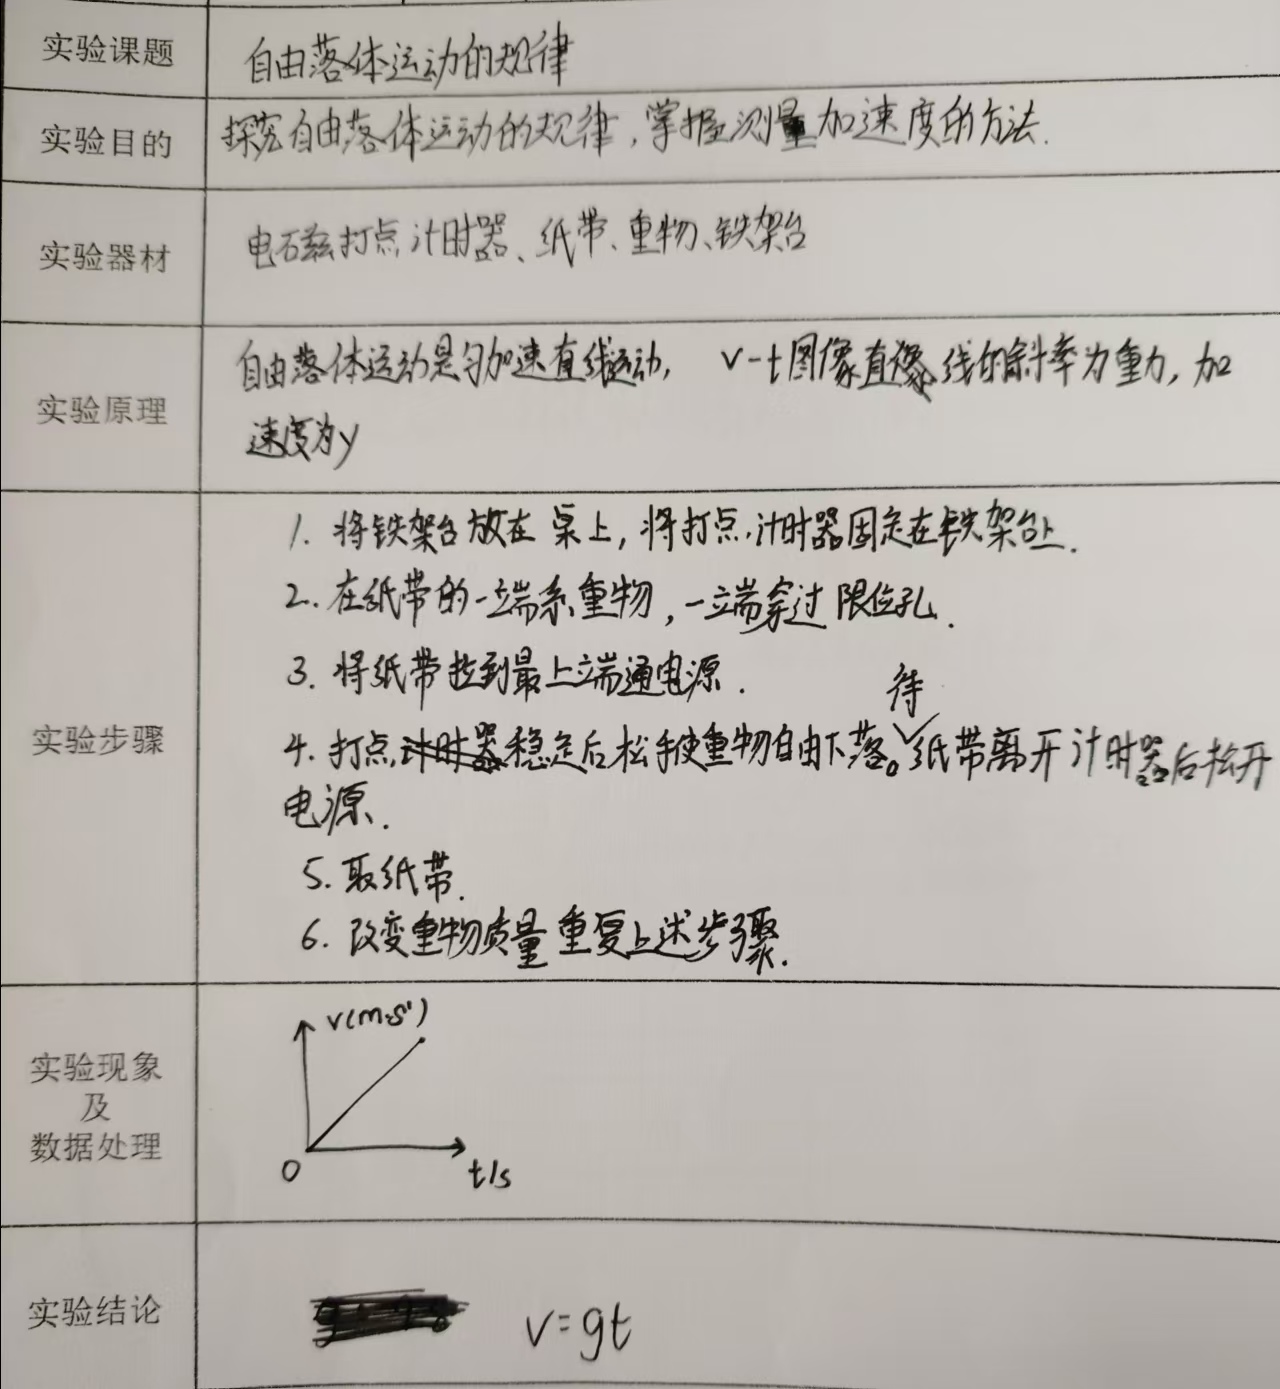 实验课题
自由落体运动的规律
实验目的
探究自由落体运动的规律,掌握测量加速度的方法.
实验器材
电磁打点计时器、纸带、重物、铁架台
实验原理
自由落体运动是匀加速直线运动, v-t图像直线的斜率为重力,加
速度为y
实验步骤
1. 将铁架台放在桌上,将打点计时器固定在铁架台上.
2. 在纸带的一端系重物,一端穿过限位孔.
3. 将纸带拉到最上端通电源.
4. 打点计时器稳定后松手使重物自由下落。待纸带离开计时器后松开
电源.
5. 取纸带.
6. 改变重物质量重复上述步骤.
实验现象
及
数据处理
v(m·s⁻¹)
0
t/s
实验结论
v=gt